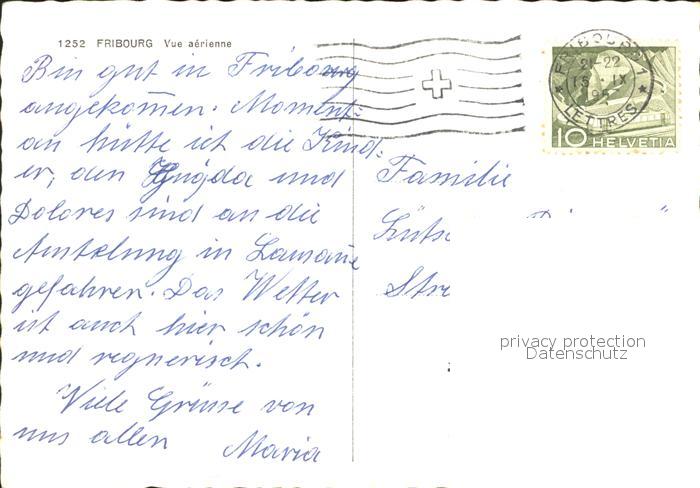 1252 FRIBOURG Vue aérienne
Bin gut in Fribourg
angekom̅en. Moment-
an hütte ich die Kind-
er, den Hugda und
Dolores sind an die
Austelung in Lausanne
gefahren. Das Wetter
ist auch hier schön
und regnerisch.
Viele Grüsse von
uns allen Maria
FRIBOURG 1
21-22
15 IX
LETTRES
10 HELVETIA
Familie
Stre
privacy protection
Datenschutz